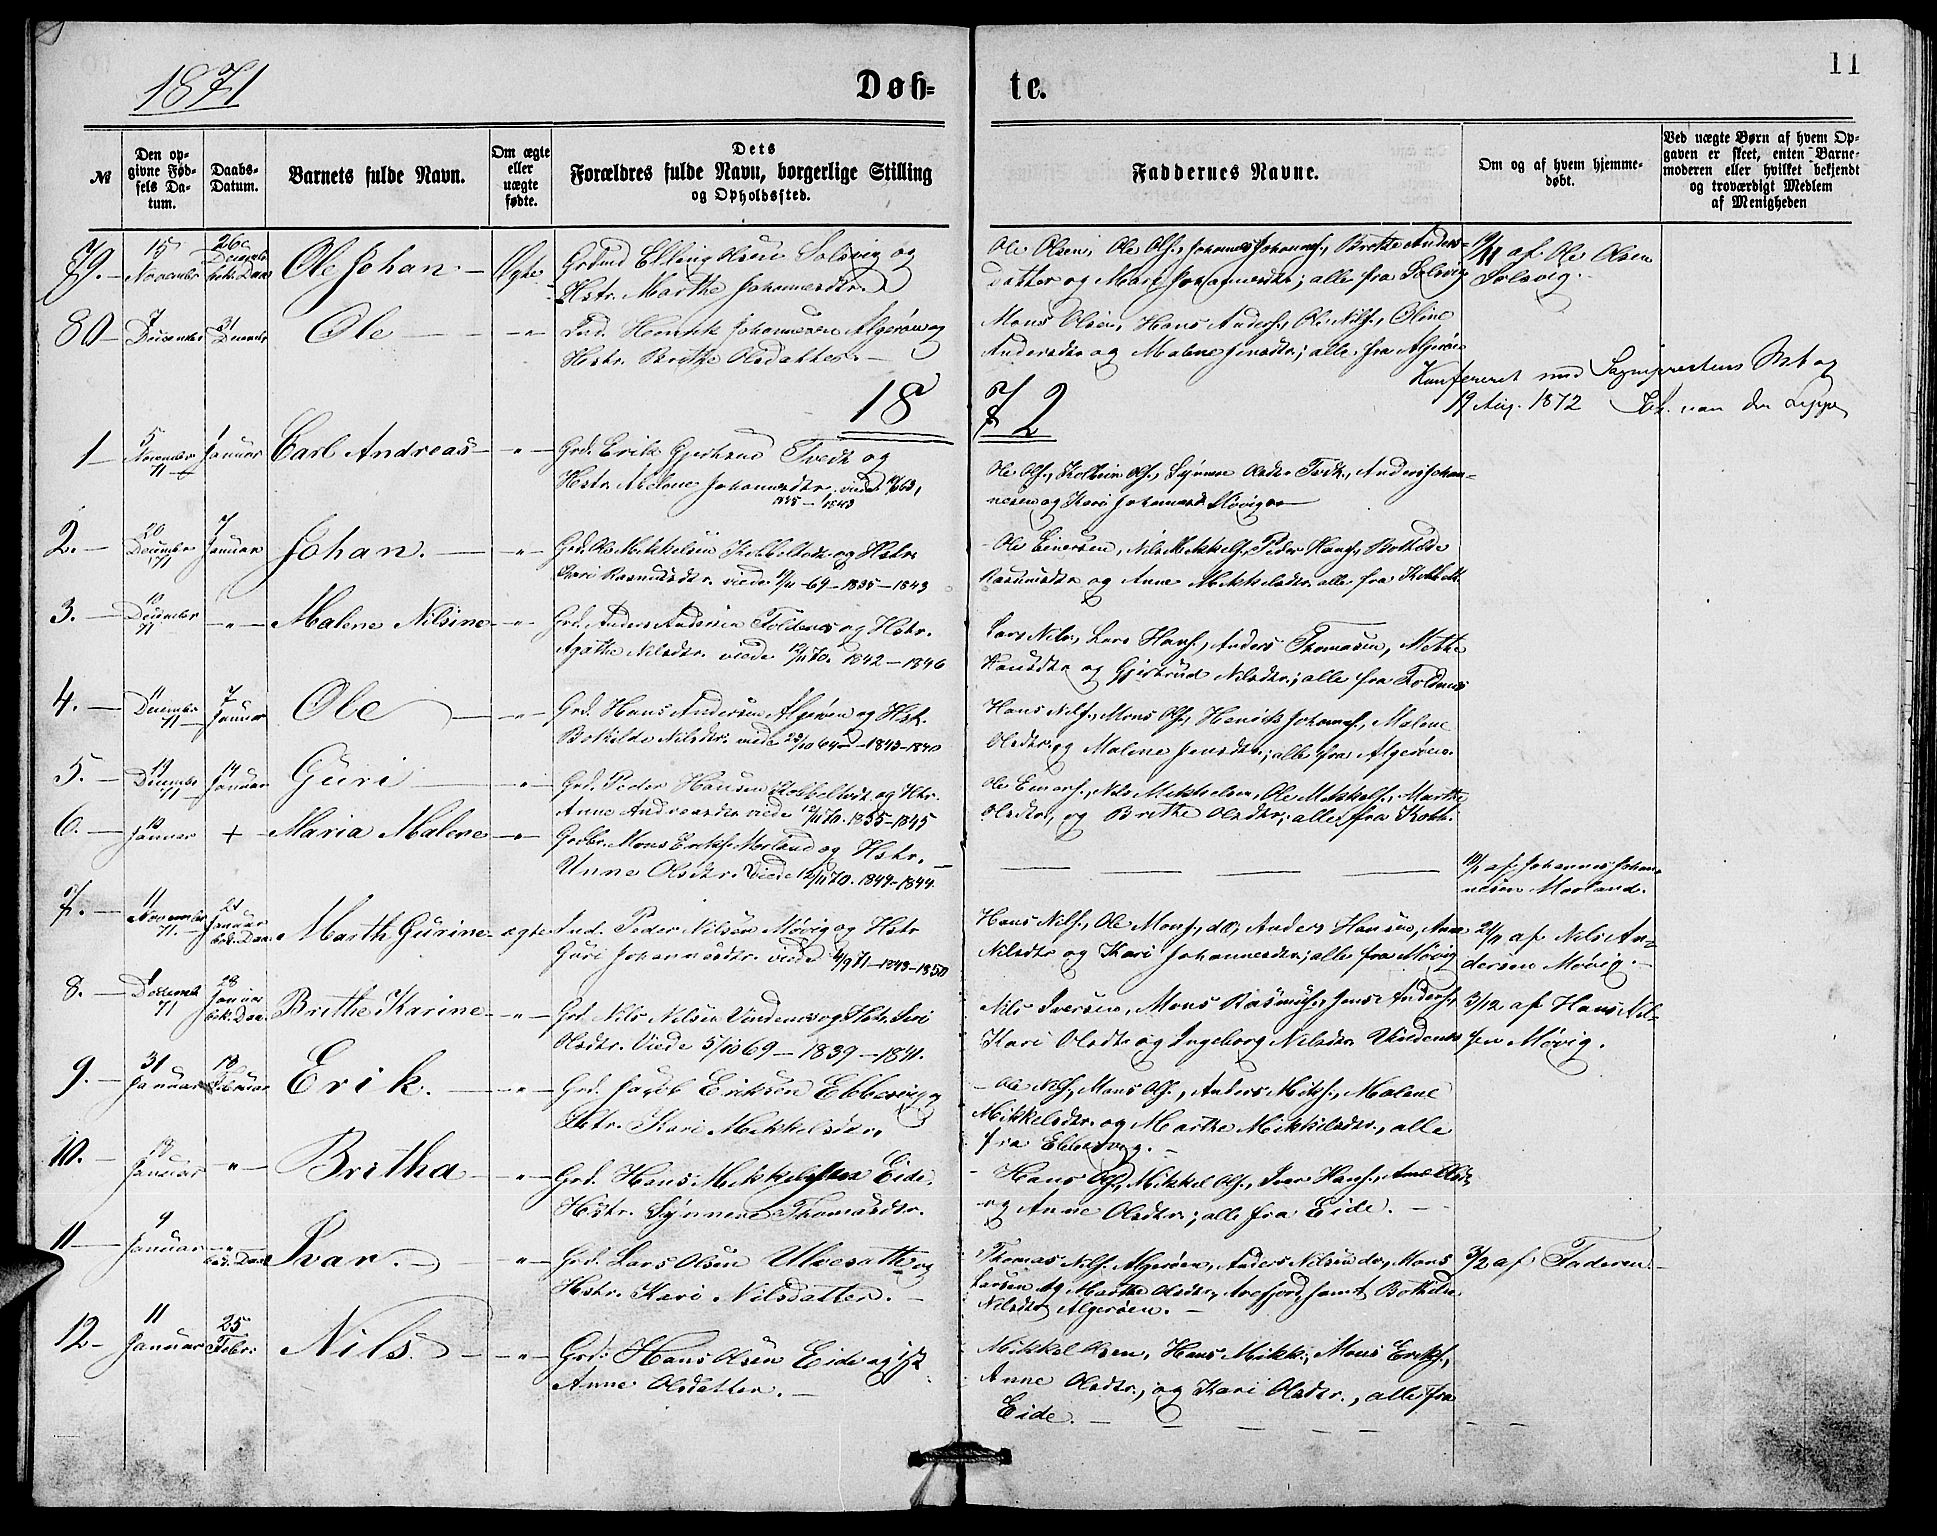 1871
Døb=
te.
11
№
Den op-
givne Fød-
sels Da-
tum.
Daabs-
Datum.
Barnets fulde Navn.
Om ægte
eller
uægte
fødte.
Dets
Forældres fulde Navn, borgerlige Stilling
og Opholdssted.
Faddernes Navne.
Om og af hvem hjemme-
døbt.
Ved uægte Børn af hvem Op-
gaven er skeet, enten Barne-
moderen eller hvilket bekjendt
og troværdigt Medlem
af Menigheden
79. 15 November 26 December Ole Johan Ægte Elling Olsen Solsvig og
Hstr. Marthe Johannesdtr.
Ole Olsen, Ole Ols., Johannes Johans., Brethe Anders-
datter og Mari Johannesdtr; alle fra Solsvig
af Ole Olsen
Solsvig.
80 7 December 31 Decembr Ole " Ind. Henrik Johannesen Algerøen og
Hstr. Brithe Olsdatter.
Mons Olsen, Hans Anders., Ole Nils., Oline
Andersdtr og Malene Jensdtr; alle fra Algerøen
1872
Konfereret med Sogneprestens Mst og
19 Aug. 1872
1 5 November 71 1 Januar Carl Andreas " Grd. Erik Tvedt og
Hstr. Johannesdtr. viede 63,
1835 - 1843
Ole Ols., Ols., Synneve Olsdtr Tvedt, Anders Johan-
nesen og Kari Johannesd. Møvigen
2. 20 December 71 7 Januar Johan. " Grd. Ole Mikkelsen og Hstr.
Kari Rasmusdtr. viede 69 - 1835 - 1843
Ole Einersen, Nils Mikkels., Peder Hans., Bothilde
Rasmusdtr og Anne Mikkelsdtr. alle fra
3. December 71 " Malene Nilsine " Grd. Anders Andersen Toldnes og Hstr.
Agathe Nilsdtr. viede 70. 1842 - 1846
Lars Nils., Lars Hans., Anders Thomasen, Mette
Hansdtr og Gjertrud Nilsdtr; alle fra Toldnes
4. 11 December 71 7 Januar Ole " Grd. Hans Andersen Algerøen og Hst.
Bothilde Nilsdtr. viede 23/10 64 - 1843 - 1840
Hans Nils., Mons Ols., Henrik Johans., Malene
Olsdtr og Malene Jensdtr; alle fra Algerøen.
5. 19 December 71 14 Januar Guri " Grd. Peder Hansen og Hstr.
Anne Andreasdtr viede 70. 1835 - 1845
Ole Einers., Nils Mikkelsen, Ole Mikkels., Marthe
Olsdtr, og Brithe Olsdtr; alle fra
6. 10 Januar + Maria Malene " Mons Eriks. Morland og Hstr.
Unne Olsdtr. Viede 70. 1849 - 1844.
af Johannes Johan-
nesen Morland.
7. 11 November 71. 21 Januar Marth Gurine ægte Ind. Peder Nilsen Møvig og Hstr
Guri Johannesdtr. viede 4/9 71 - 1843 - 1850
Hans Nils., Ole Mons., do, Anders Hansen, Ane
Nilsdtr og Kari Johannesdtr; alle fra Møvig
af Nils An-
dersen Møvig.
8. Decemb 71 28 Januar Brithe Karine " Grd. Nils Nilsen Vindenes og Hstr. Siri
Olsdtr. Viede 5/10 69 - 1839 - 1841.
Nils Iversen, Mons Rasmus., Jens Anders.,
Kari Olsdtr og Ingeborg Nilsdtr Vindenes
3/12 af Hans Nil-
sen Møvig.
9. 31 Januar 18 Februar Erik. " Grd. Jacob Eriksen Ebbesvig og
Hstr. Kari Mikkelsdtr.
Ole Nils., Mons Ols., Anders Miks., Malene
Mikkelsdtr. og Marthe Mikkelsdtr., alle
fra Ebbesvig.
10. Januar " Britha " Grd. Hans Mikkelsen Eide,
Hstr. Synneve Thomasdtr.
Hans Ols., Mikkel Ols., Iver Hans., Ane Olsdt,
og Anne Olsdtr.; alle fra Eide.
11 9 Januar " Ivar. " Grd. Lars Olsen Ulvesætter og
Hstr. Kari Nilsdatter.
Thomas Nils. Algerøen, Anders Nilsen do, Mons
Larsen og Marthe Olsdtr, samt Bothilde
Nilsdtr Algerøen.
3/2 af Faderen
12 11 Januar 25 Febr: Nils. " Grd: Hans Olsen Eide og Hst.
Anne Olsdatter.
Mikkel Olsen, Hans Mikk., Mons Eriks.,
Anne Olsdtr., og Kari Olsdtr., alle fra
Eide.